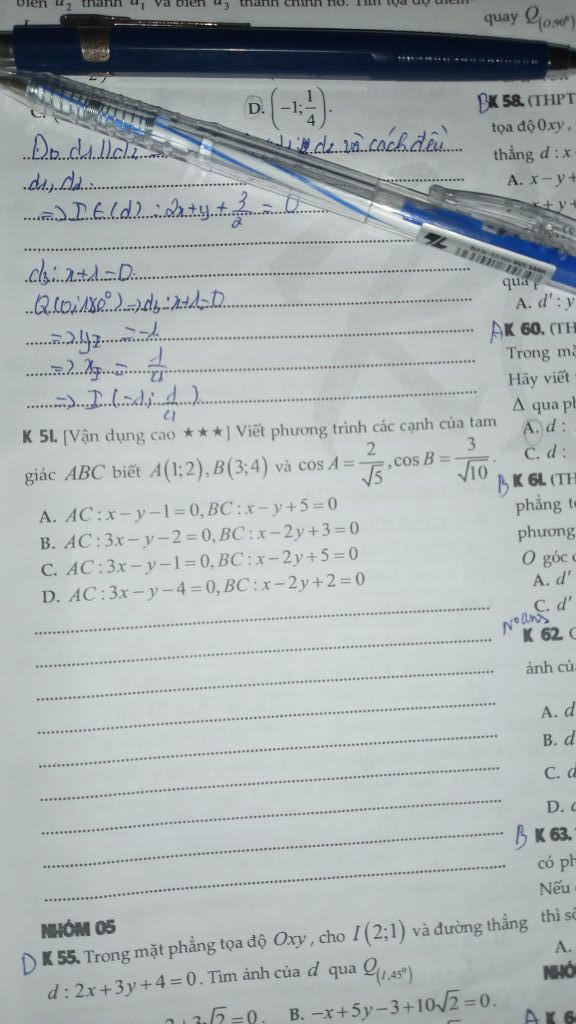 biến u₂ thành u₁ và biến u₃ thành chính nó. Tìm tọa độ điểm
D. (-1; 1/4).
Do d1 // d2
d2 và cách đều
d1, d2.
=> I ∈ (d) : 2x+y+3/2 = 0
d3: x+1=0.
Q(O; 180°) => d3: x+1=0
= -1
= 1/4
=> I (-1; 1/4)
K 51. [Vận dụng cao ★★★] Viết phương trình các cạnh của tam
giác ABC biết A(1;2), B(3;4) và cos A = 2/√5, cos B = 3/√10.
A. AC : x − y − 1 = 0, BC : x − y + 5 = 0
B. AC : 3x − y − 2 = 0, BC : x − 2y + 3 = 0
C. AC : 3x − y − 1 = 0, BC : x − 2y + 5 = 0
D. AC : 3x − y − 4 = 0, BC : x − 2y + 2 = 0
NHÓM 05
D K 55. Trong mặt phẳng tọa độ Oxy, cho I(2;1) và đường thẳng
d : 2x + 3y + 4 = 0. Tìm ảnh của d qua Q(I,45°)
B. −x + 5y − 3 + 10√2 = 0.
quay Q(O;90°)
B K 58. (THPT
tọa độ Oxy,
thẳng d : x
A. x − y +
A. d' : y
A K 60. (TH
Trong mặ
Hãy viết
Δ qua ph
A. d :
C. d :
B K 61. (TH
phẳng t
phương
O góc
A. d'
C. d'
No ans
K 62.
ảnh củ
A. d
B. d
C. d
D.
B K 63.
có ph
Nếu
thì số
A.
NHÓ
A K 6